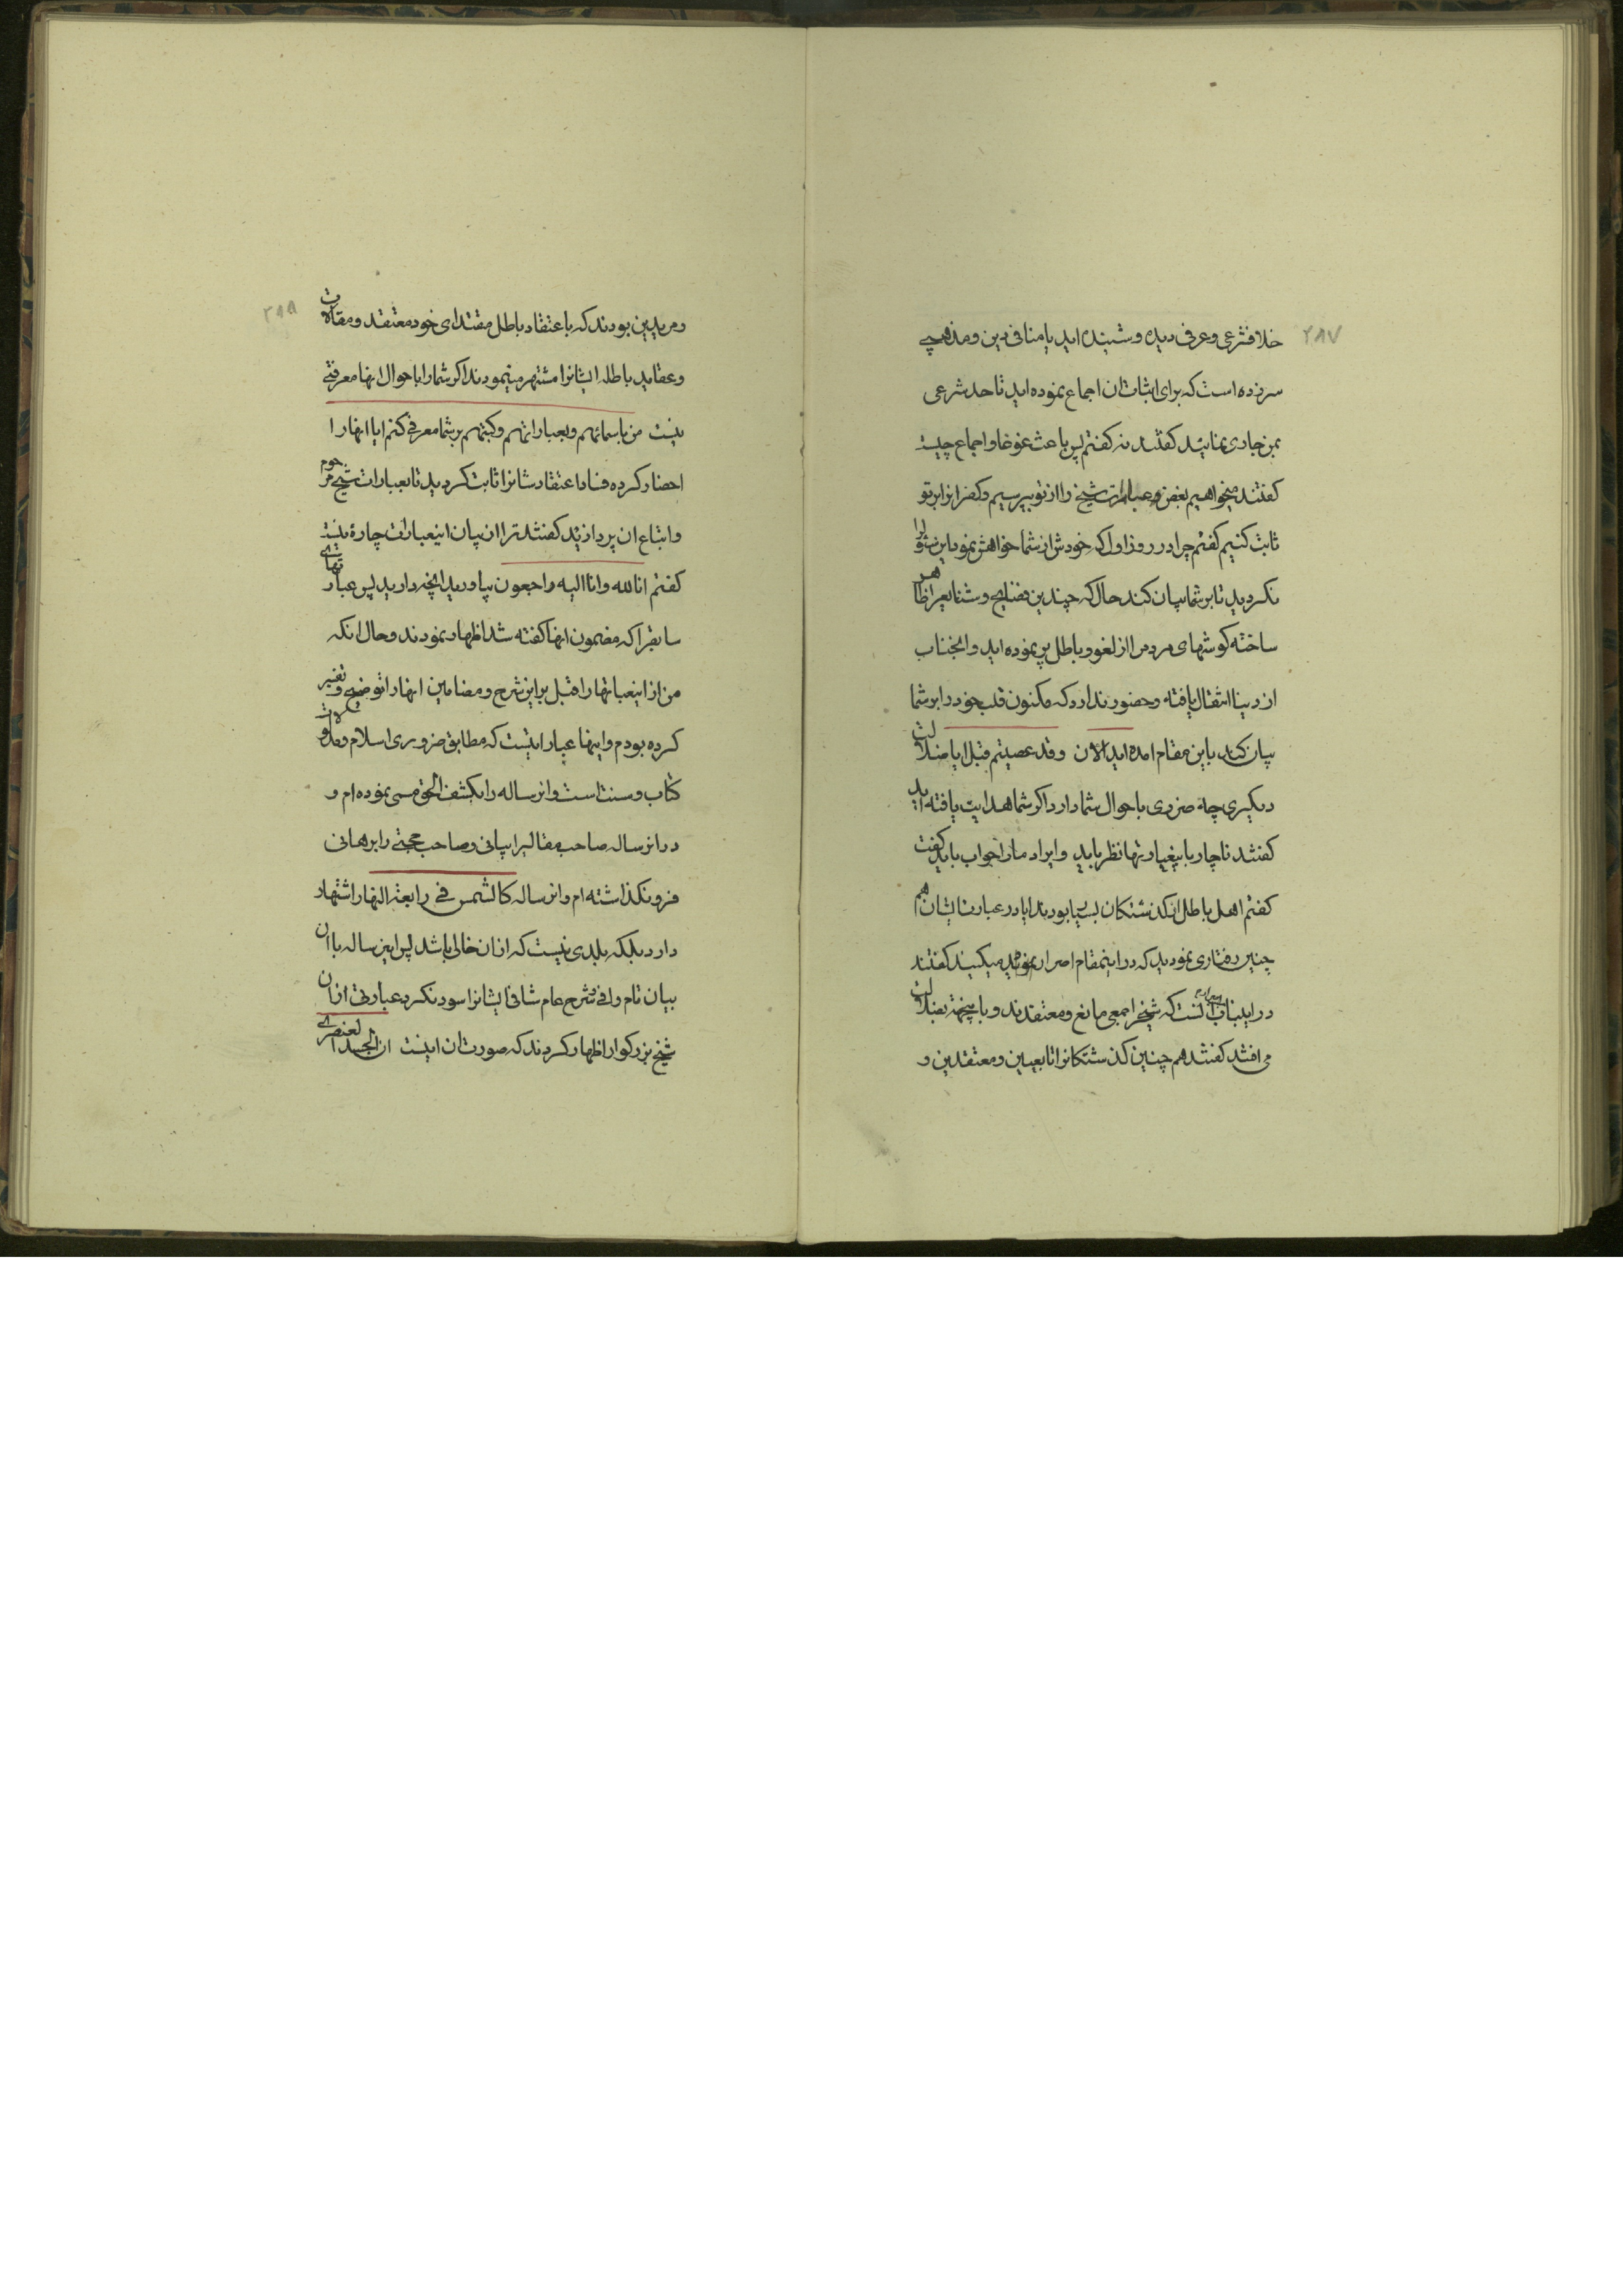 ۲۸۷
خلاف شرعی و عرفی دیده و شنیده اید یا منافی دین و مذهبی
سرزده است که برای اثبات ان اجماع نموده اید تا حد شرعی
بمن جاری نمائید کفتند نه کفتم پس باعث غوغا و اجماع چیست
کفتند میخواهیم بعض عبارات شیخ را از تو بپرسیم و کفر انرا بر تو
ثابت کنیم کفتم چرا در روز اول که خودش از شما خواهش نمود باین شورا
نکردید تا بر شما بیان کند حال که چندین فضایح و شنایع را ظاهر
ساخته کوشهای مردم را از لغو و باطل پر نموده اید و انجناب
از دنیا انتقال یافته و حضور ندارد که مکنون قلب خود را بر شما
بیان کند باین مقام امده اید الان وقد عصیتم قبل ایا ضلالت
دیکری چه ضرری باحوال شما دارد اکر شما هدایت یافته اید
کفتند ناچار باینعبارتها نظر باید و ایراد ما را جواب باید کفت
کفتم اهل باطل از کذشتکان بسیا بودند ایا در عبارت ایشان هم
چنین رفتاری نمودید که در اینمقام اصرار میکنید کفتند
در اینباب انست که شیخ را جمعی مانع و معتقدند و باینجهة بضلالت
می افتند کفتند هم چنین کذشتکانرا تابعین و معتقدین و
۲۸۸
و مریدین بودند که باعتقاد باطل مقتدای خود معتقد و مقالات
و عقاید باطله ایشانرا مشتهر مینمودند اکر شما را باحوال انها معرفتی
نیست من باسمائهم و بعباراتهم و کتبهم بر شما معرفی کنم ایا انها را
احضار کرده فساد اعتقادشانرا ثابت کردید تا بعبارات شیخ مرحوم
و اتباع ان پردازید کفتند ترا از بیان اینعبارت چارهٔ نیست
کفتم انا لله و انا الیه راجعون بیاورید انچه دارید پس عبارتهای
سابقرا که مضمون انها کفته شد اظهار نمودند و حال انکه
من از اینعبارتها را قبل بر این شرح و مضامین انها را توضیح و تفسیر
کرده بودم و اینها عباراتیست که مطابق ضروری اسلام و مدلولات
کتاب و سنت است و انرساله را بکشف الحق مسمی نموده ام و
در انرساله صاحب مقالیرا بیانی و صاحب حجتی را برهانی
فرو نکذاشته ام و انرساله کالشمس فی رابعة النهار اشتهار
دارد بلکه بلدی نیست که از ان خالی باشد پس این رساله با ان
بیان تام وافی و شرح عام شافی ایشانرا سود نکرد عبارتی از ان
شیخ بزرکوار اظهار کردند که صورت ان اینست ان الجسد العنصری